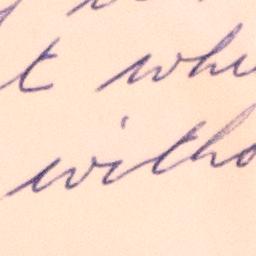 t whe
witho